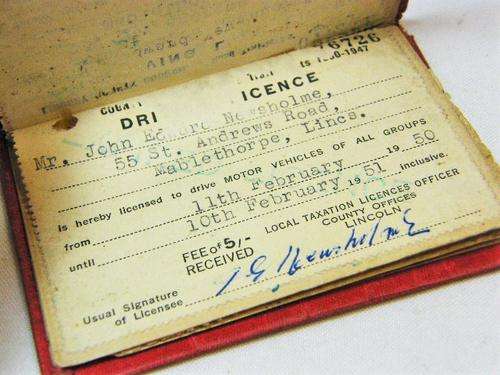 76726
COUN
DRI ICENCE
Mr. John Edward Newsholme,
55 St. Andrews Road,
Mablethorpe, Lincs.
is hereby licensed to drive MOTOR VEHICLES OF ALL GROUPS
from 11th February 1950
until 10th February 1951 inclusive.
FEE of 5/-
RECEIVED
LOCAL TAXATION LICENCES OFFICER
COUNTY OFFICES
LINCOLN
Usual Signature
of Licensee
J E Newsholme